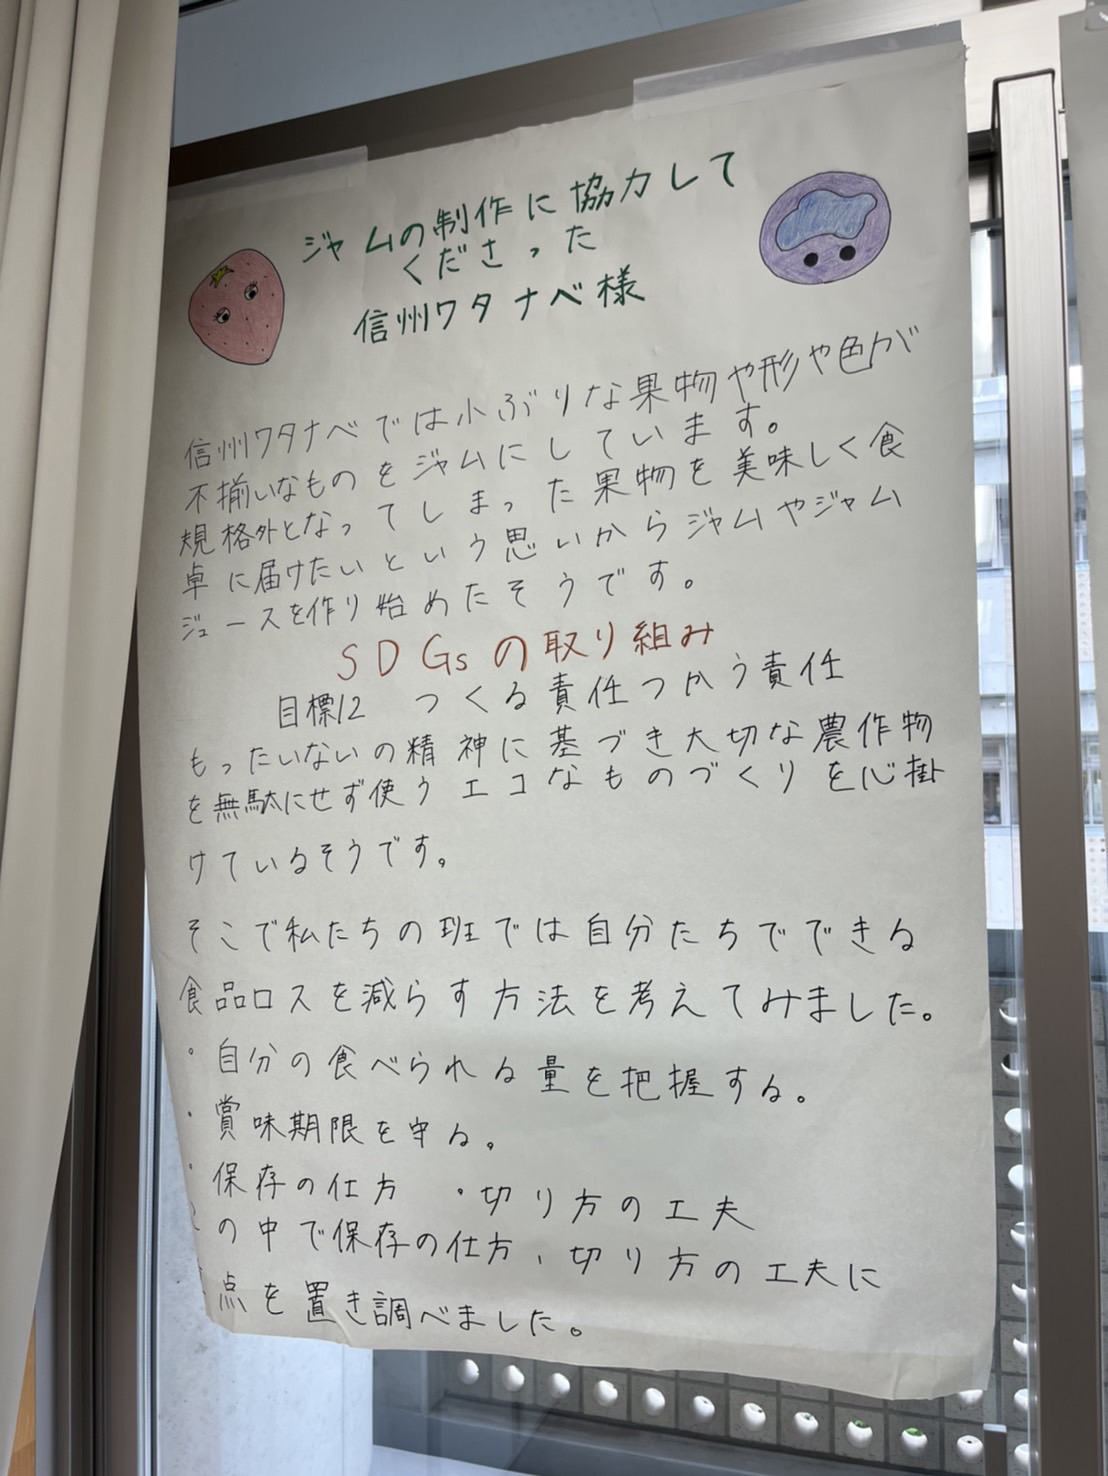 ジャムの制作に協力して
くださった
信州ワタナベ様
信州ワタナベでは小ぶりな果物や形や色が
不揃いなものをジャムにしています。
規格外となってしまった果物を美味しく食
卓に届けたいという思いからジャムやジャム
ジュースを作り始めたそうです。
SDGsの取り組み
目標12 つくる責任つかう責任
もったいないの精神に基づき大切な農作物
を無駄にせず使うエコなものづくりを心掛
けているそうです。
そこで私たちの班では自分たちでできる
食品ロスを減らす方法を考えてみました。
・自分の食べられる量を把握する。
・賞味期限を守る。
・保存の仕方 ・切り方の工夫
の中で保存の仕方、切り方の工夫に
点を置き調べました。